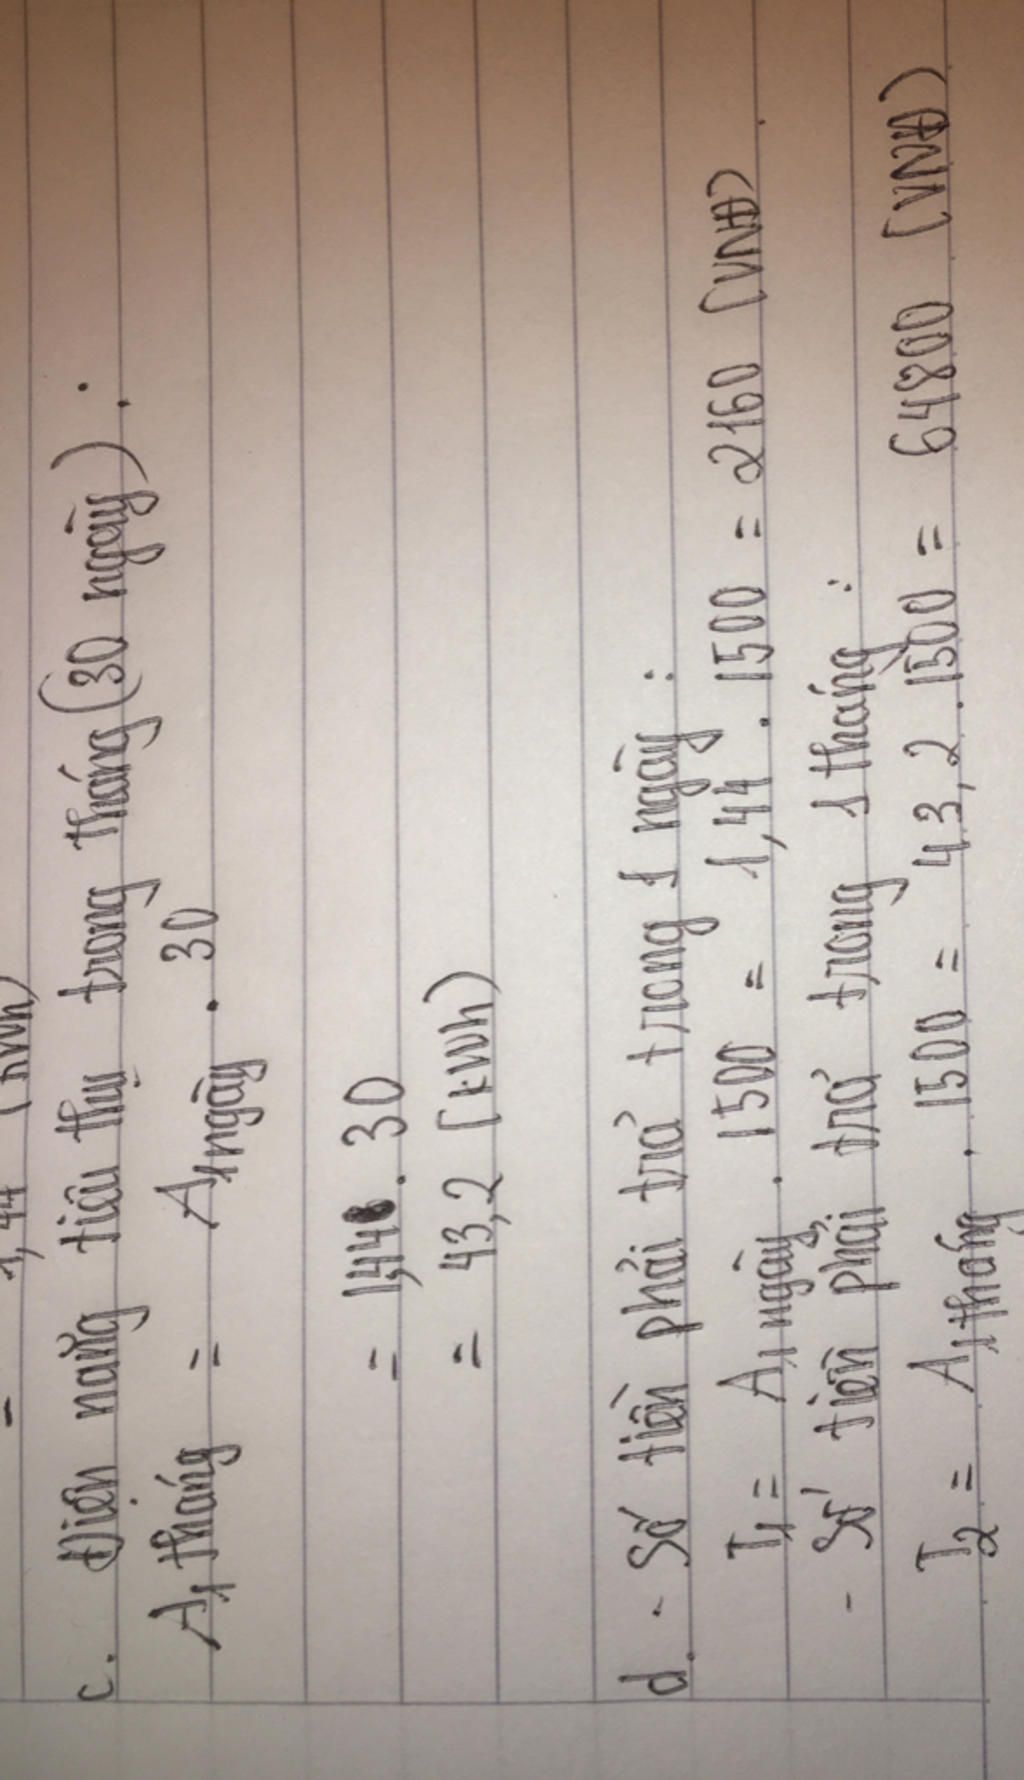 = 1,44 (kWh)
c. Điện năng tiêu thụ trong tháng (30 ngày) :
A1 tháng = A1 ngày . 30
= 1,44 . 30
= 43,2 (kWh)
d. - Số tiền phải trả trong 1 ngày :
T1 = A1 ngày . 1500 = 1,44 . 1500 = 2160 (VNĐ)
- Số tiền phải trả trong 1 tháng :
T2 = A1 tháng . 1500 = 43,2 . 1500 = 64800 (VNĐ)